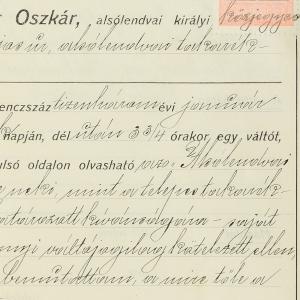 r Oszkár, alsólendvai királyi közjegyző
úr, alsólendvai takarék-
enczszáz tizenhárom évi január
napján, dél után 3 3/4 órakor egy váltót,
ulsó oldalon olvasható azo. Alsólendvai
neki, mint a telepes takarék-
határozott kívánságára - saját
váltójogilag kötelezett ellen
bemutattam, a mire tőle a